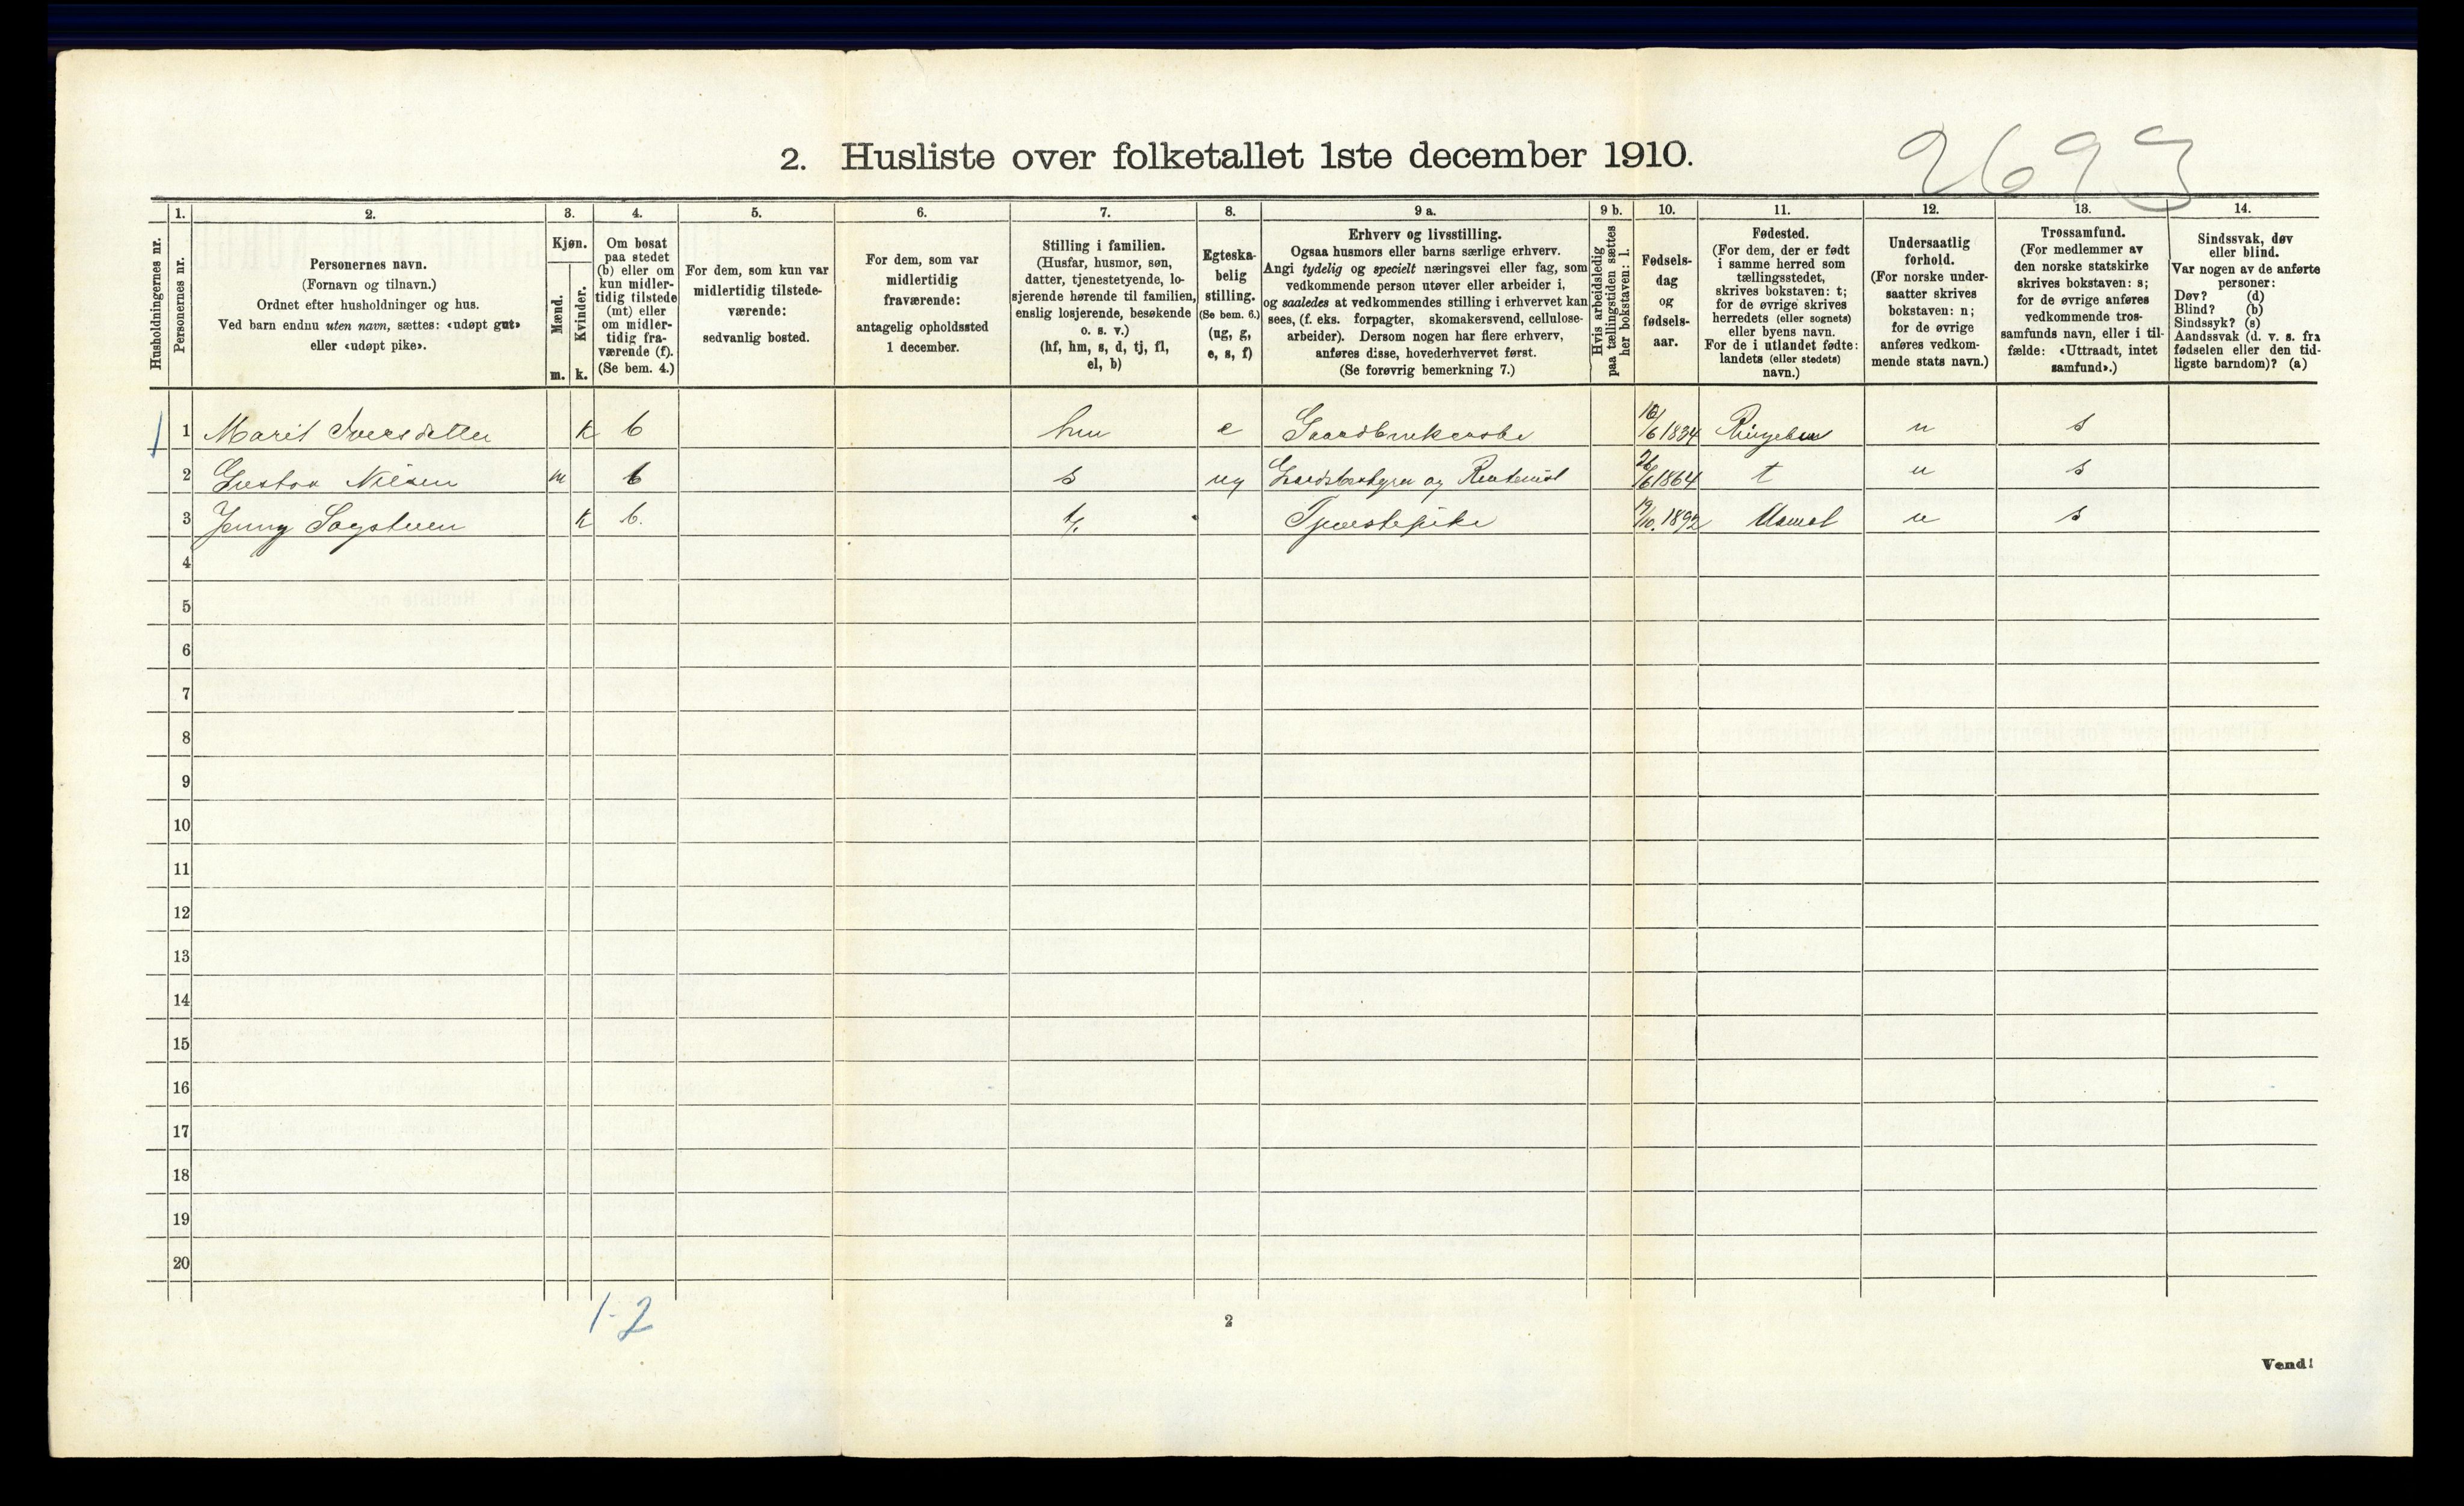 2. Husliste over folketallet 1ste december 1910.
2693
Husholdningernes nr.
1.
Personernes nr.
2.
Personernes navn.
(Fornavn og tilnavn.)
Ordnet efter husholdninger og hus.
Ved barn endnu uten navn, sættes: «udøpt gut»
eller «udøpt pike».
3.
Kjøn.
Mænd.
m.
Kvinder.
k.
4.
Om bosat
paa stedet
(b) eller om
kun midler-
tidig tilstede
(mt) eller
om midler-
tidig fra-
værende (f).
(Se bem. 4.)
5.
For dem, som kun var
midlertidig tilstede-
værende:
sedvanlig bosted.
6.
For dem, som var
midlertidig
fraværende:
antagelig opholdssted
1 december.
7.
Stilling i familien.
(Husfar, husmor, søn,
datter, tjenestetyende, lo-
sjerende hørende til familien,
enslig losjerende, besøkende
o. s. v.)
(hf, hm, s, d, tj, fl,
el, b)
8.
Egteska-
belig
stilling.
(Se bem. 6.)
(ug, g,
e, s, f)
9 a.
Erhverv og livsstilling.
Ogsaa husmors eller barns særlige erhverv.
Angi tydelig og specielt næringsvei eller fag, som
vedkommende person utøver eller arbeider i,
og saaledes at vedkommendes stilling i erhvervet kan
sees, (f. eks. forpagter, skomakersvend, cellulose-
arbeider). Dersom nogen har flere erhverv,
anføres disse, hovederhvervet først.
(Se forøvrig bemerkning 7.)
9 b.
Hvis arbeidsledig
paa tællingstiden sættes
her bokstaven: l.
10.
Fødsels-
dag
og
fødsels-
aar.
11.
Fødested.
(For dem, der er født
i samme herred som
tællingsstedet,
skrives bokstaven: t;
for de øvrige skrives
herredets (eller sognets)
eller byens navn.
For de i utlandet fødte:
landets (eller stedets)
navn.)
12.
Undersaatlig
forhold.
(For norske under-
saatter skrives
bokstaven: n;
for de øvrige
anføres vedkom-
mende stats navn.)
13.
Trossamfund.
(For medlemmer av
den norske statskirke
skrives bokstaven: s;
for de øvrige anføres
vedkommende tros-
samfunds navn, eller i til-
fælde: «Uttraadt, intet
samfund».)
14.
Sindssvak, døv
eller blind.
Var nogen av de anførte
personer:
Døv? (d)
Blind? (b)
Sindssyk? (s)
Aandssvak (d. v. s. fra
fødselen eller den tid-
ligste barndom)? (a)
1 1 Marit Iversdatter k b hm e Gaardbrukerske 1834 Ringebu n s
2 Gustav Nilsen m b s ug Gaardsbestyrer og 1864 t n s
3 Jenny k b. tj. Tjenestepike 19/10. 1892 n s
4
5
6
7
8
9
10
11
12
13
14
15
16
17
18
19
20
1-2
2
Vend!